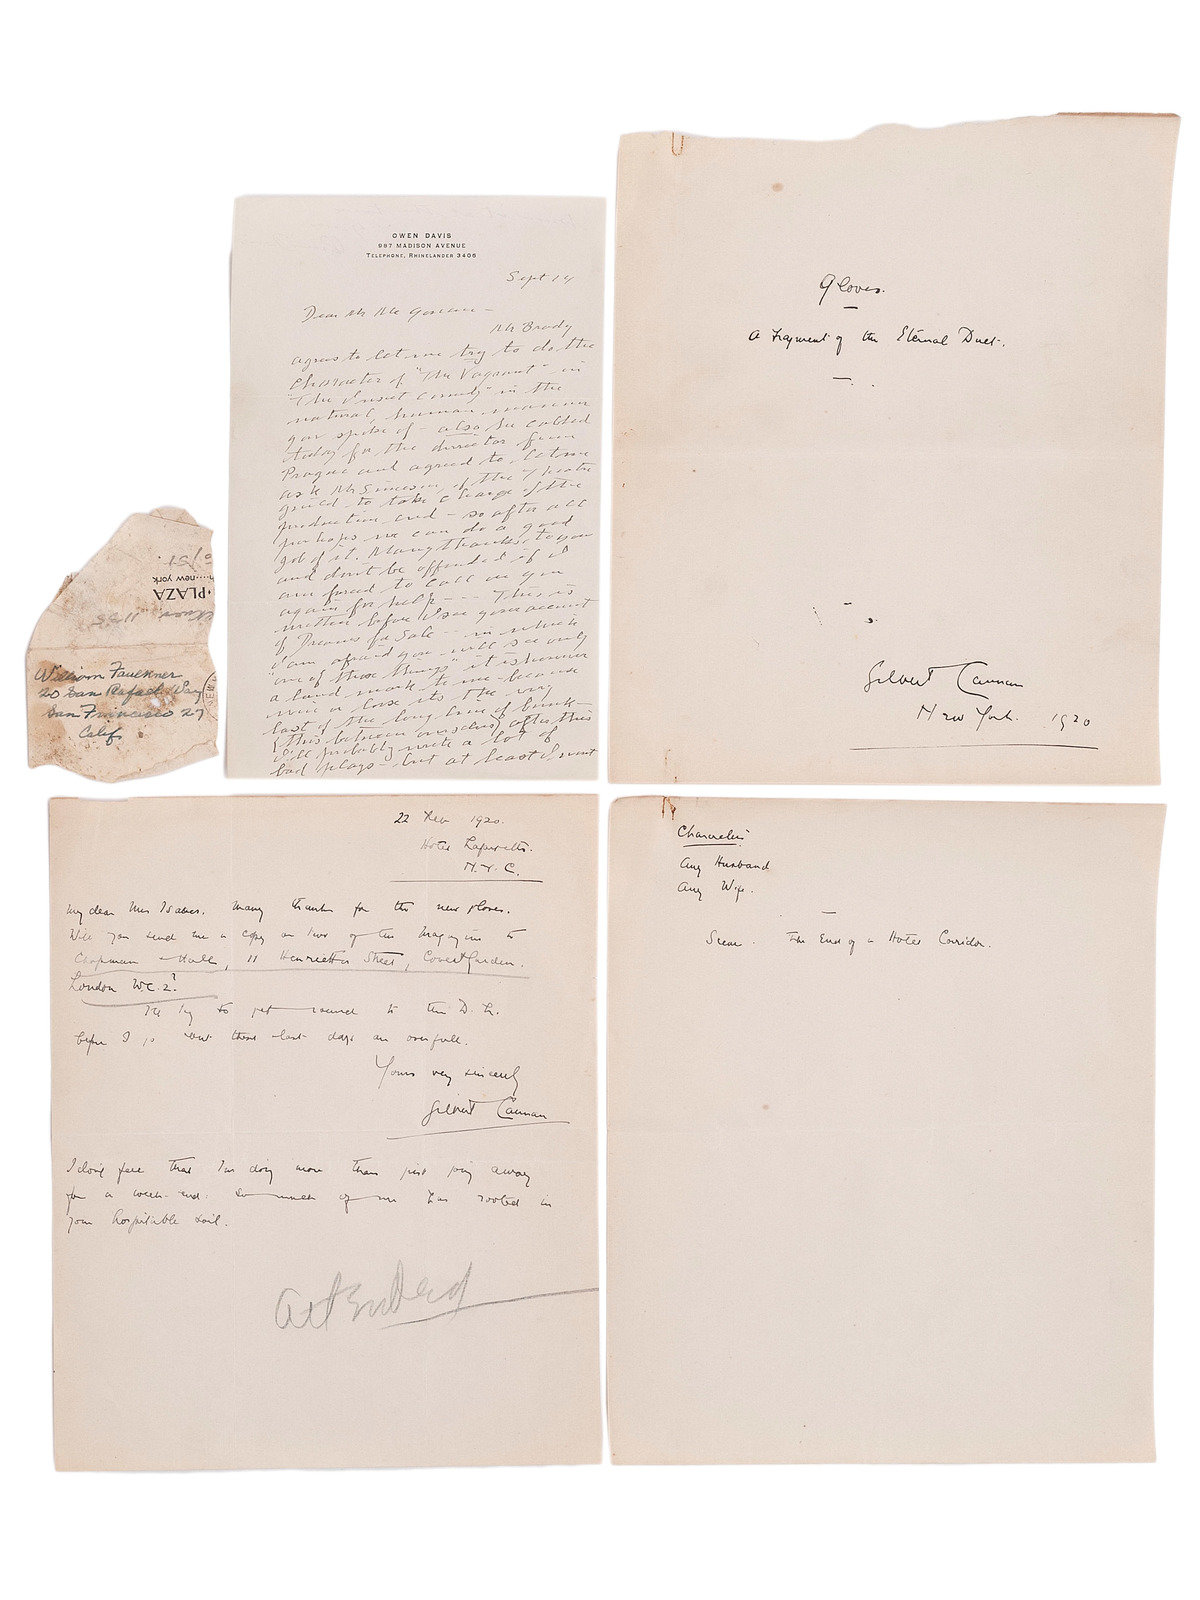 OWEN DAVIS
987 MADISON AVENUE
TELEPHONE, RHINELANDER 3406
Sept 14
Dear Mr Mc
Mr Brady
agrees to let me try to do the
character of "The Vagrant" in
"The Insect Comedy" in the
natural, human, manner
you spoke of - also he cabled
today for the director from
Prague and agreed to let me
ask Mr Simonson of the Theatre
guild to take charge of the
production and - so after all
perhaps we can do a good
job of it. Many thanks to you
and don't be offended if I
am forced to call on you
again for help - - - This is
written before I see your account
of Dreams for Sale - in which
I am afraid you will see only
"one of those things" it is however
a land mark to me - because
win or lose its the very
last of the long line of bunk -
(this between ourselves) after this
I'll probably write a lot of
bad plays - but at least I want
Gloves.
A Fragment of the Eternal Duet.
Gilbert Cannan
New York. 1920
new york
PLAZA
William Faulkner
20 San Rafael Way
San Francisco 27
Calif
22 1920.
Hotel Lafayette.
N.Y.C.
My dear Mrs Isaacs. Many thanks for the new Gloves.
Will you send me a copy or two of the Magazine to
Chapman & Hall, 11 Henrietta Street, Covent Garden.
London W.C.2?
I'll try to get round to the
before I go but these last days are overfull.
Yours very sincerely
Gilbert Cannan
I don't feel that I'm doing more than just going away
for a week-end. So much of me has rooted in
your hospitable soil.
Characters
Any Husband
Any Wife.
Scene. The End of a Hotel Corridor.